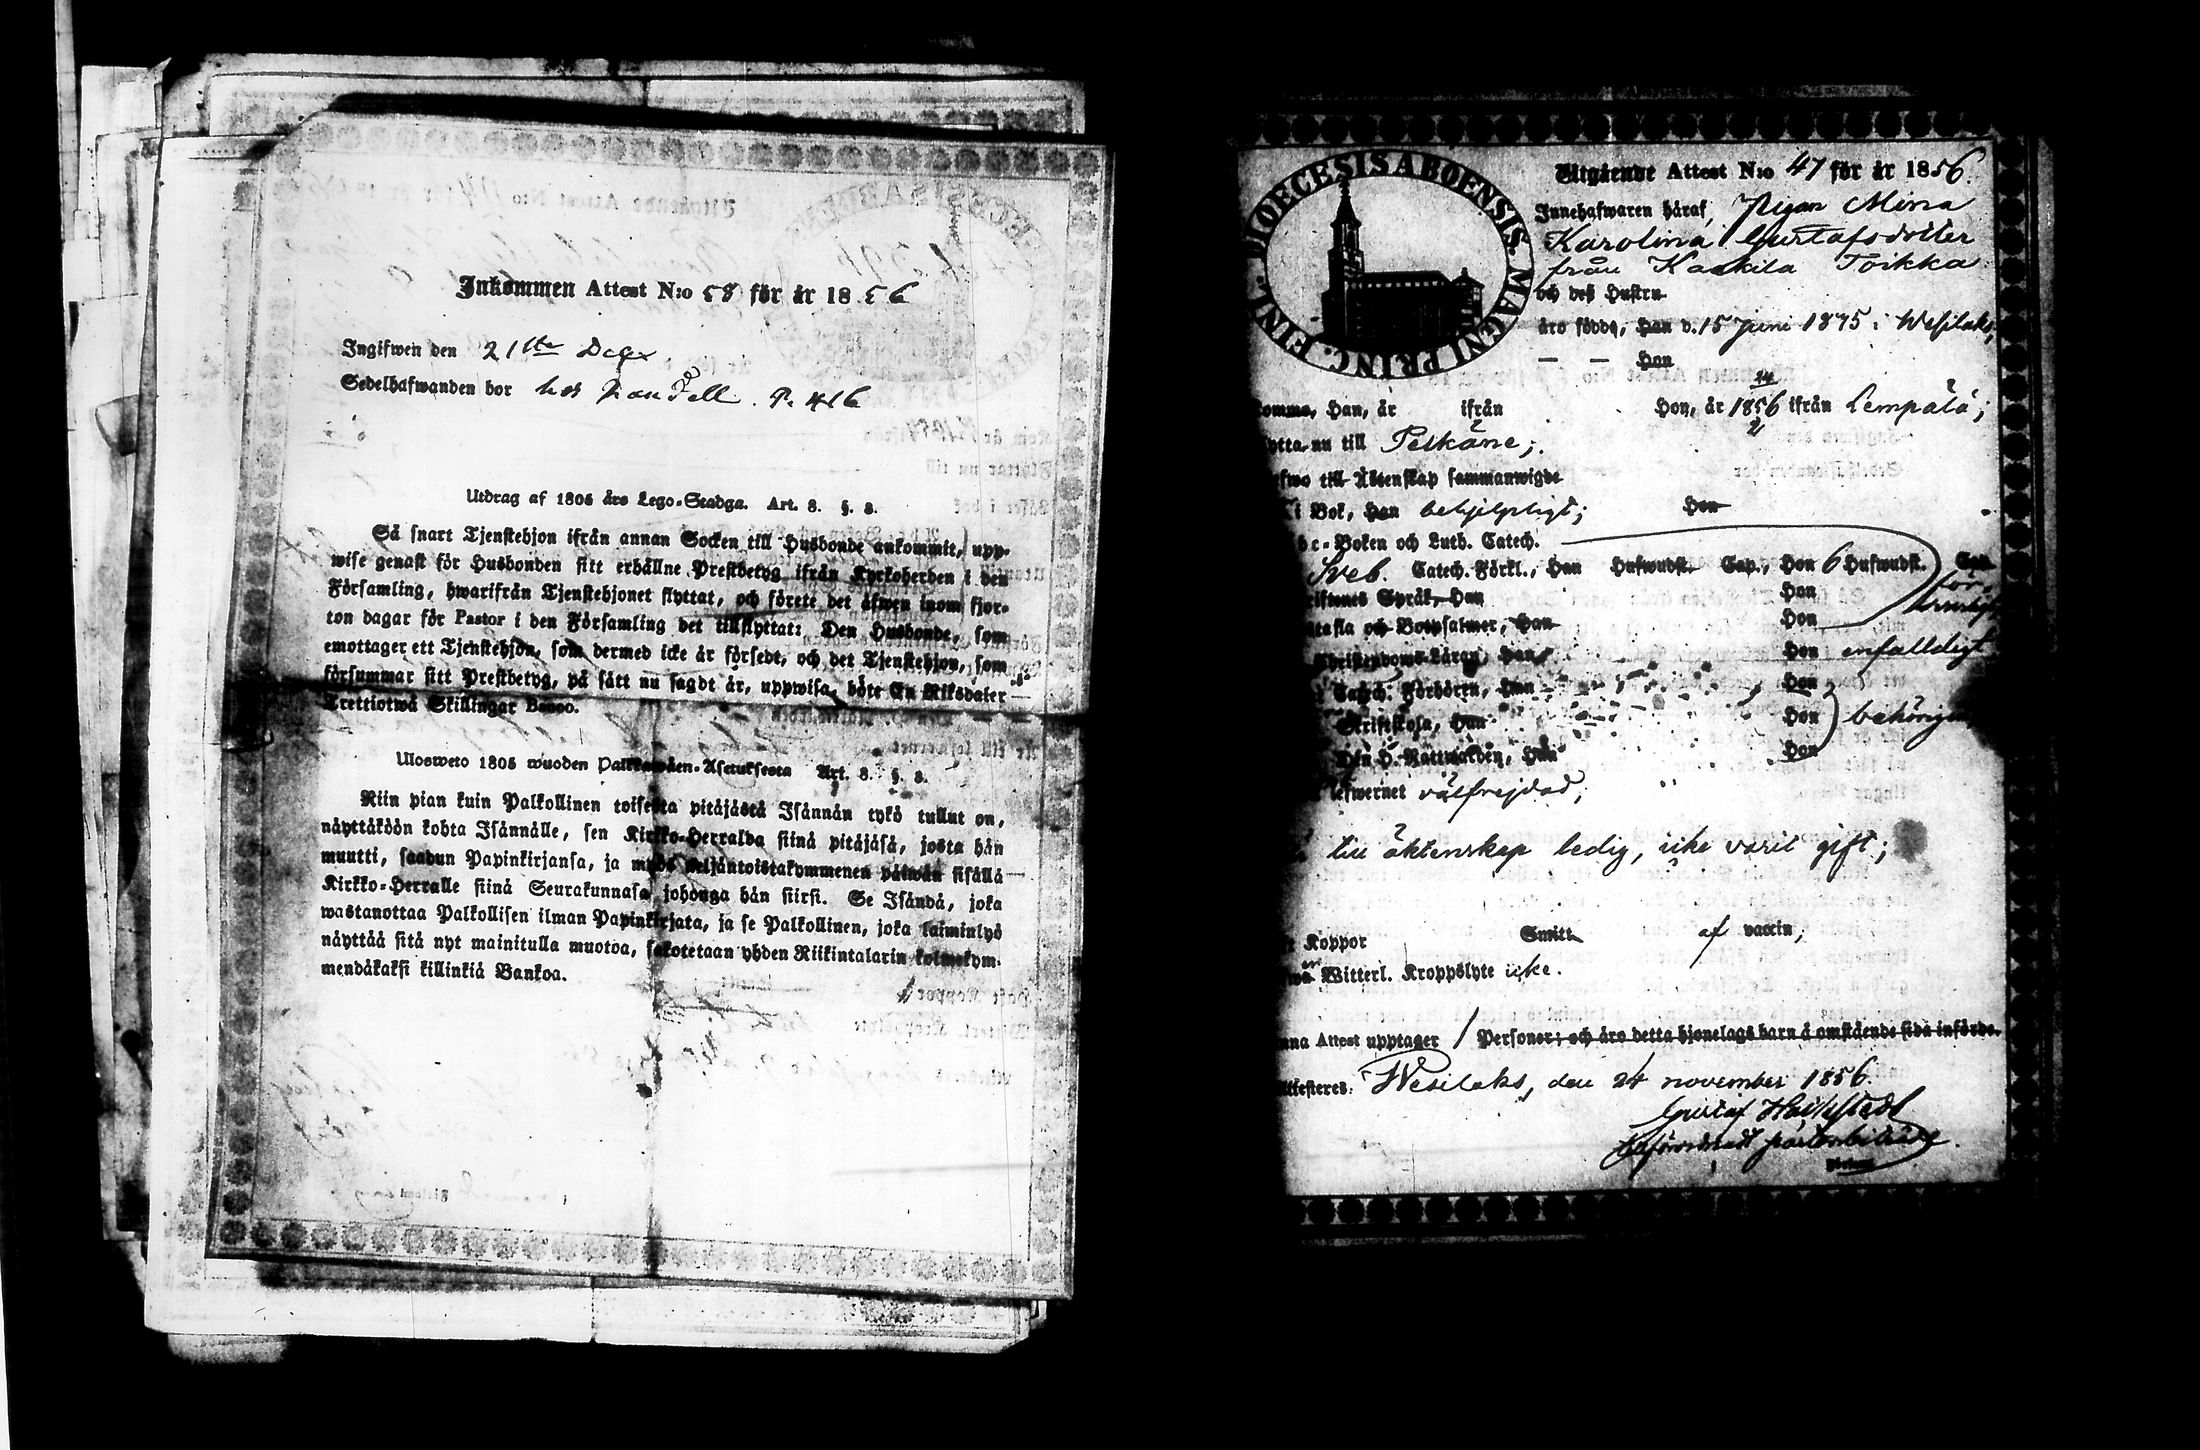 Inkommen Attest N:o 58 för år 1856
Ingifwen den 21sta Decbr
Sedelhafwanden bor hos P. 416
Utdrag af 1805 års Lego-Stadga. Art. 8. §. 8.
Så snart Tjenstehjon ifrån annan Socken till Husbonde ankommit, upp-
wise genast för Husbonden sitt erhållne Prestbetyg ifrån Kyrkoherden i den
Församling, hwarifrån Tjenstehjonet flyttat, och förete det äfwen inom fjor-
ton dagar för Pastor i den Församling det tillflyttat: Den Husbonde, som
emottager ett Tjenstehjon, som dermed icke är försedt, och det Tjenstehjon, som
försummar sitt Prestbetyg, på sätt nu sagdt är, uppwisa, böte En Riksdaler
Trettiotwå Skillingar Banco.
Ulosweto 1805 wuoden Palkkawäen-Asetuksesta Art. 8. §. 8.
Niin pian kuin Palkollinen toisesta pitäjästä Isännän tykö tullut on,
näyttäköön kohta Isännälle, sen Kirkko-Herralda siinä pitäjäsä, josta hän
muutti, saadun Papinkirjansa, ja myös neljäntoistakymmenen päiwän sisällä
Kirkko-Herralle siinä Seurakunnasa johonga hän siirsi. Se Isändä, joka
wastanottaa Palkollisen ilman Papinkirjata, ja se Palkollinen, joka laiminlyö
näyttää sitä nyt mainitulla muotoa, sakotetaan yhden Riikintalarin kolmekym-
mendäkaksi killinkiä Bankoa.
DIOECESIS ABOENSIS. MAGNI PRINC. FINL.
Utgående Attest N:o 47 för år 1856.
Innehafwaren häraf, Pigan Mina
Karolina Gustafsdotter
från Kaakila Toikka
och deß Hustru
äro födde, Han d. 15 Juni 18 5 i Wesilaks,
— — Hon
komme, Han, år ifrån Hon, år 1856 ifrån Lempälä;
flytta nu till Pelkäne;
till Äktenskap sammanwigde
i Bok, Han behjelpligt; Hon
bc-Boken och Luth. Catech.
Sveb. Catech. Förkl., Han Hufwudst. Cap., Hon 6 Hufwudst. Cap.
Språk, Han Hon
och Botpsalmer, Han Hon
Christendoms-Läran, Han Hon enfalldigt
Catech. Förhören, Han Hon
Skriftskola, Han Hon behörigen
Den H. Nattwarden, Han Hon
lefwernet välfrejdad;
till äktenskap ledig, icke varit gift;
Koppor Smitt af vaccin;
Witterl. Kroppslyte icke.
Attest upptager 1 Personer; och äro detta hjonelags barn å omstående sida införde.
Attesteres. Wesilaks, den 24 november 1856.
Gustaf